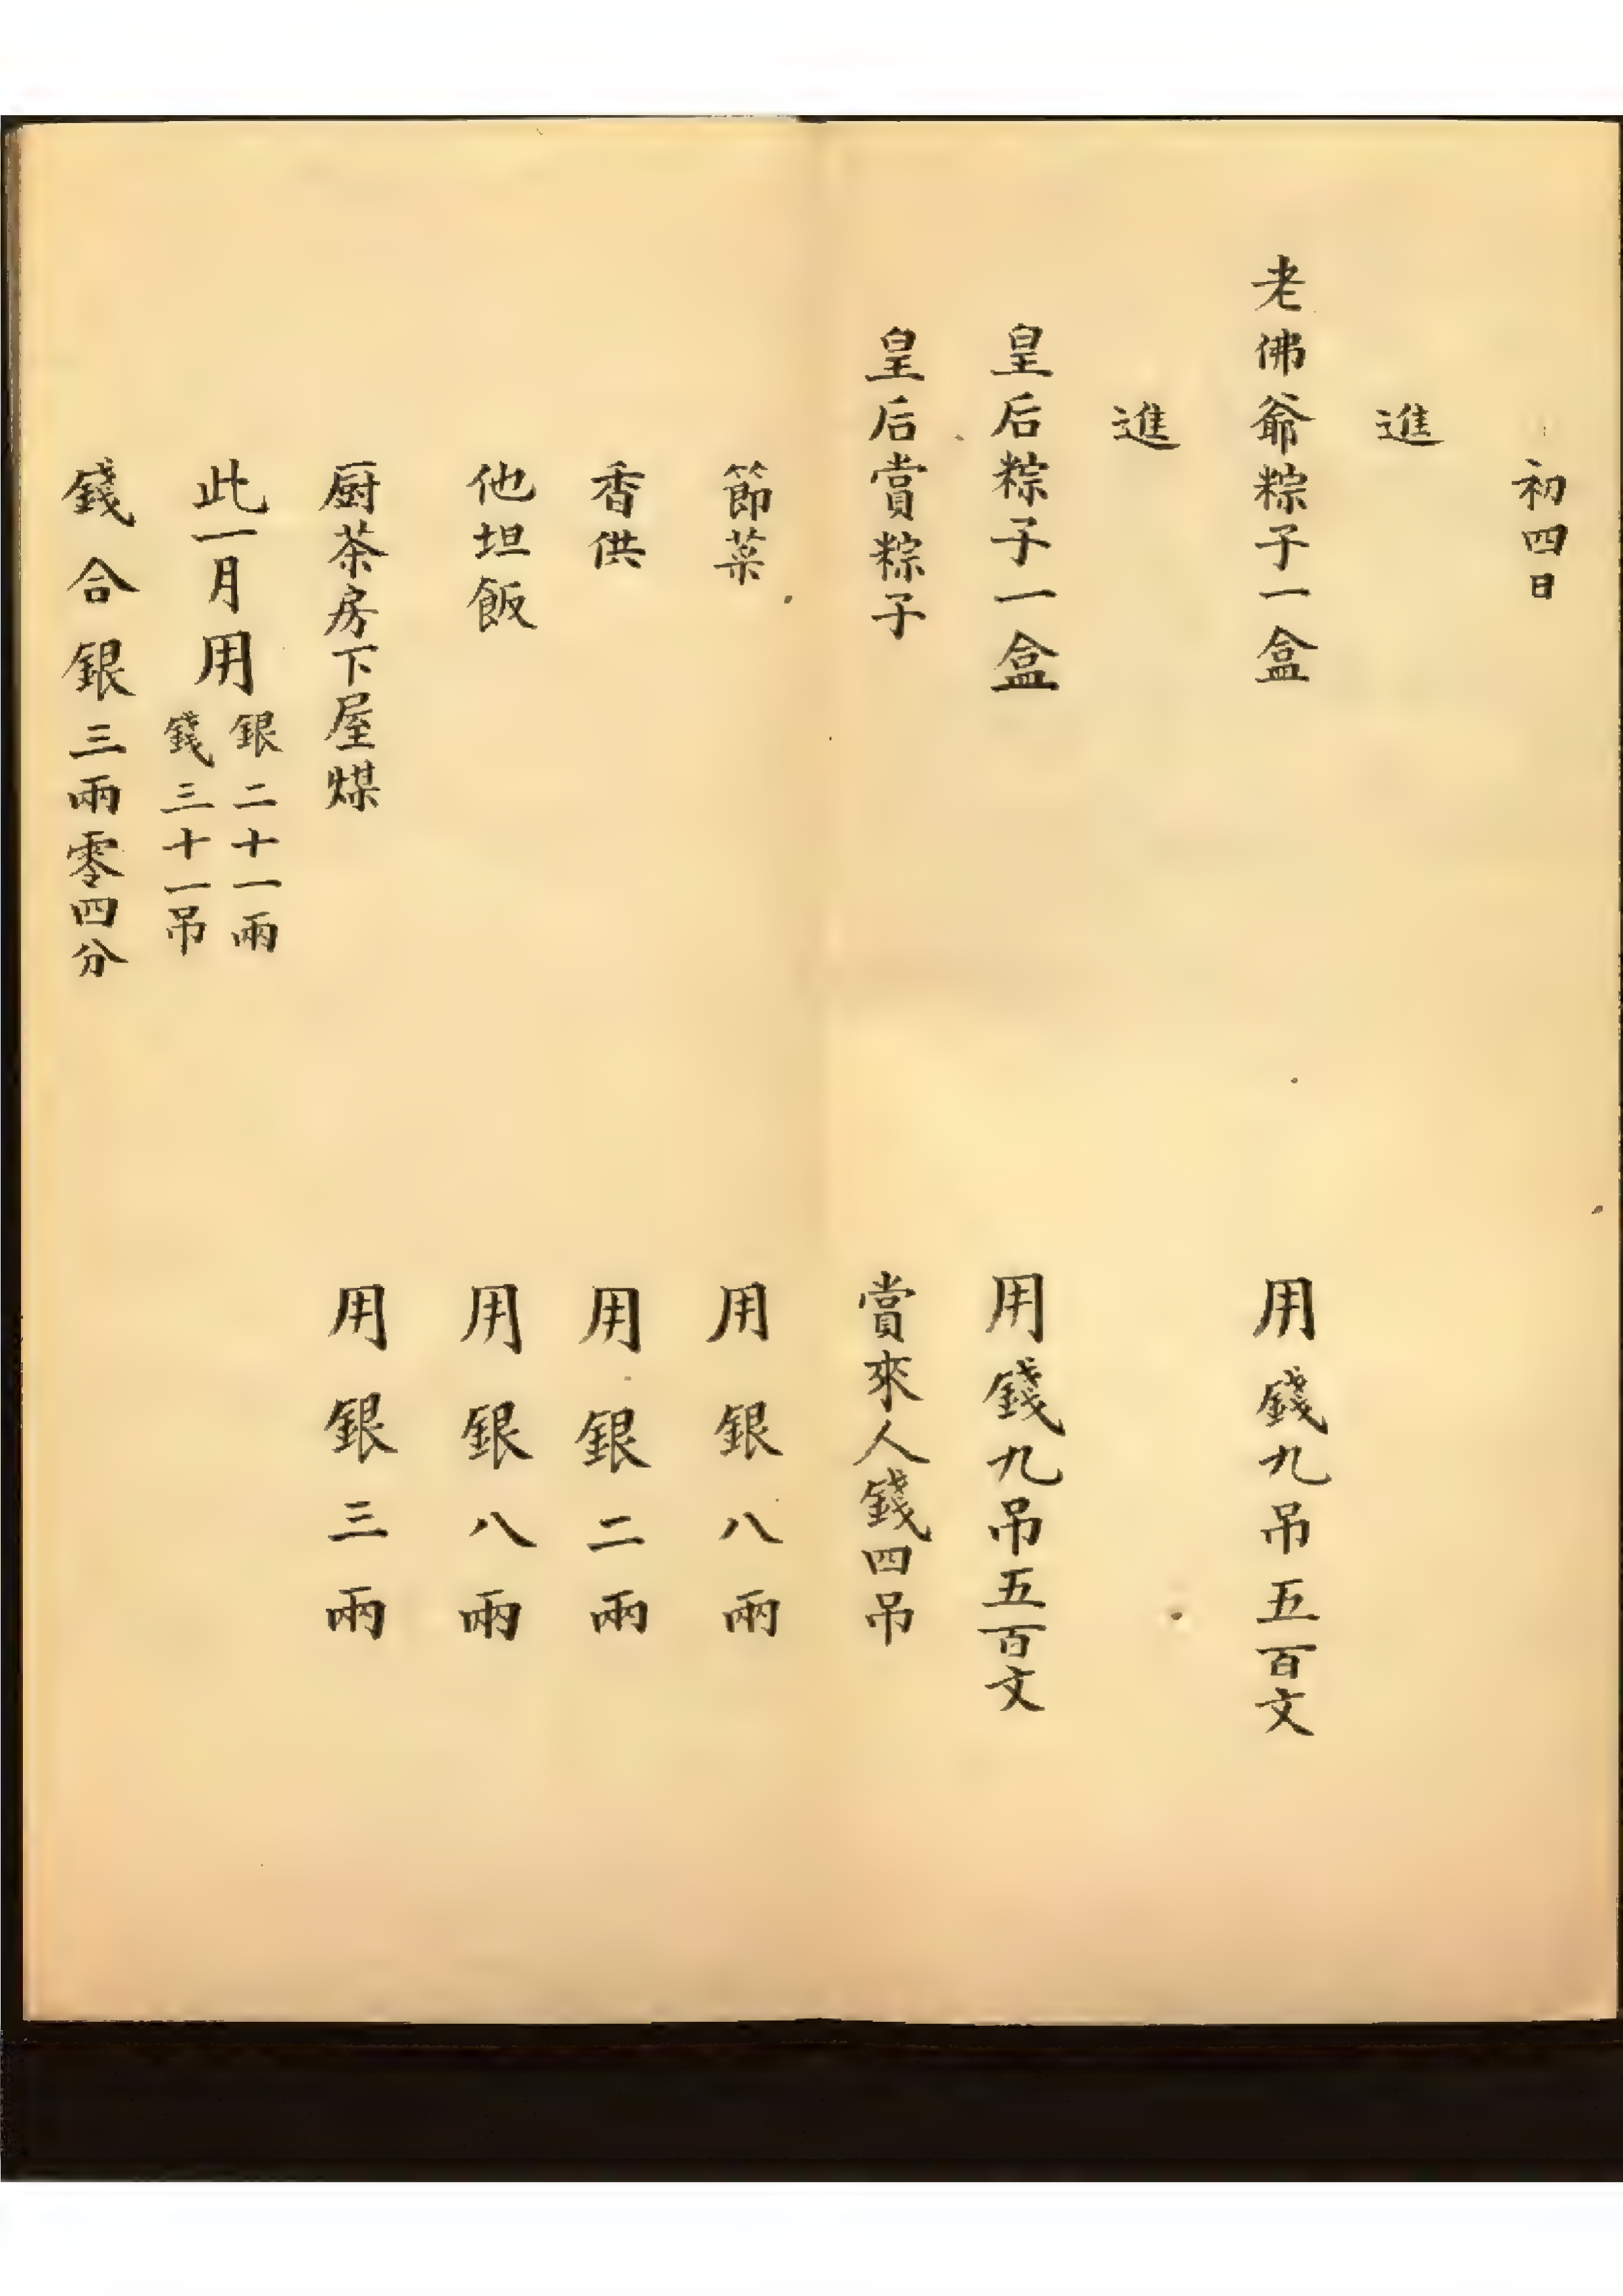 初四日
進
老佛爺粽子一盒 用錢九吊五百文
進
皇后粽子一盒 用錢九吊五百文
皇后賞粽子 賞來人錢四吊
節菜 用銀八兩
香供 用銀二兩
他坦飯 用銀八兩
厨茶房下屋煤 用銀三兩
此一月用銀二十一兩
錢三十一吊
錢合銀三兩零四分